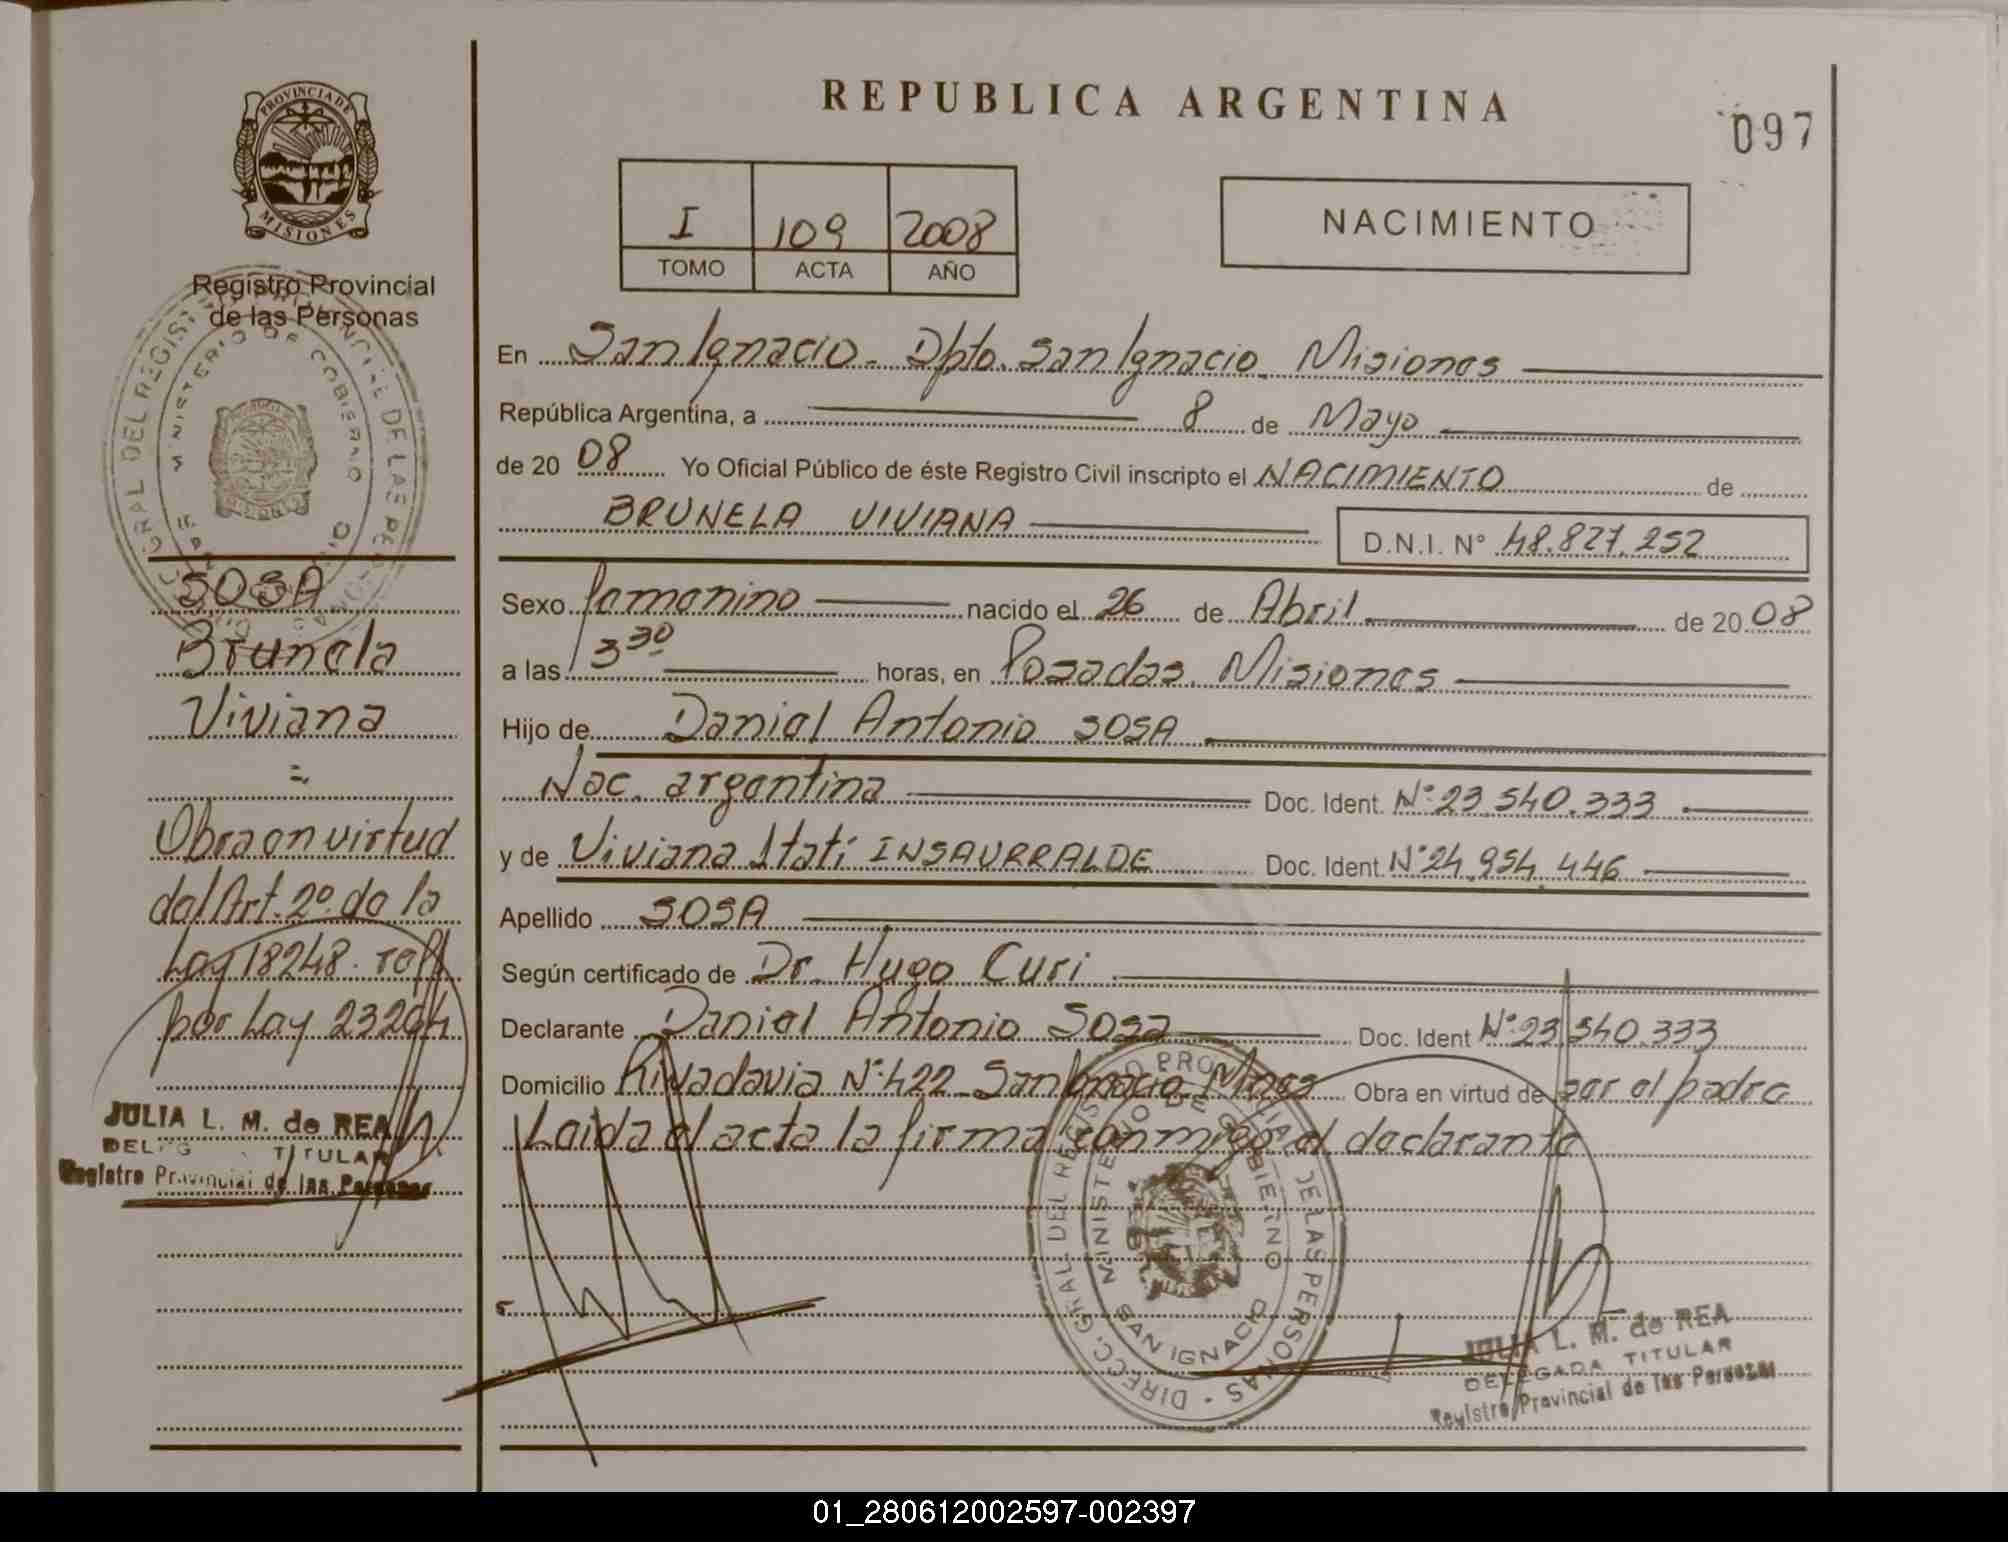 PROVINCIA DE
MISIONES
Registro Provincial
de las Personas
SOSA
Brunela
Viviana
=
Obra en virtud
del Art. 2º. de la
Ley 18248. ref.
por Ley 23264
JULIA L. M. de REA
TITULAR
Registro Provincial de las Personas
REPUBLICA ARGENTINA
097
I 109 2008
TOMO ACTA AÑO
NACIMIENTO
En San Ignacio - Dpto. San Ignacio. Misiones
República Argentina, a 8 de Mayo
de 20 08 Yo Oficial Público de éste Registro Civil inscripto el NACIMIENTO de
BRUNELA VIVIANA D.N.I. Nº 48.827.252
Sexo femenino nacido el 26 de Abril de 20 08
a las 3 30 horas, en Posadas. Misiones
Hijo de Daniel Antonio SOSA
Nac. argentina Doc. Ident. Nº 23.540.333
y de Viviana Itatí INSAURRALDE Doc. Ident. Nº 24.954.446
Apellido SOSA
Según certificado de Dr. Hugo Curi
Declarante Daniel Antonio Sosa Doc. Ident Nº 23.540.333
Domicilio Rivadavia Nº 422 - San Ignacio - Mnes Obra en virtud de ser el padre
Leída el acta la firma conmigo el declarante
DIREC. GRAL. DEL REGISTRO PROVINCIAL DE LAS PERSONAS
MINISTERIO DE GOBIERNO
SAN IGNACIO
JULIA L. M. de REA
DELEGADA TITULAR
Registro Provincial de las Personas
01_280612002597-002397